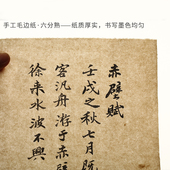 手工毛边纸·六分熟——纸质厚实，书写墨色均匀
赤壁赋
壬戌之秋七月既
客汎舟游于赤壁
徐来水波不兴